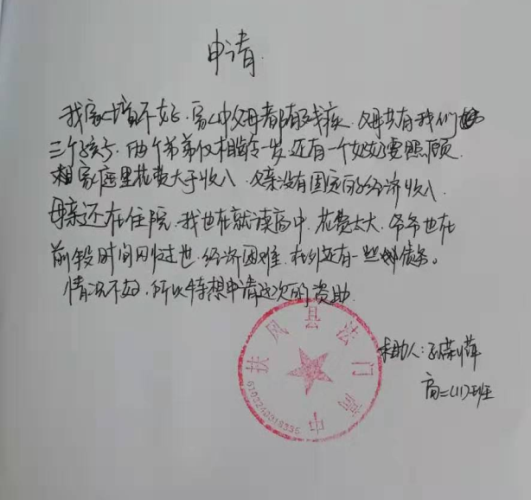 申请
我家境不好，家中父母都有残疾，父母共有我们
三个孩子，两个弟弟仅相差一岁，还有一个奶奶要照顾，
家庭里花费大于收入，父亲没有固定的经济收入，
母亲还在住院，我也在就读高中，花费太大，爷爷也在
前段时间刚过世，经济困难，在外还有一些债务。
情况不好，所以特想申请这次的资助。
扶风县法门高中
6103240018336
求助人：
高二(11)班